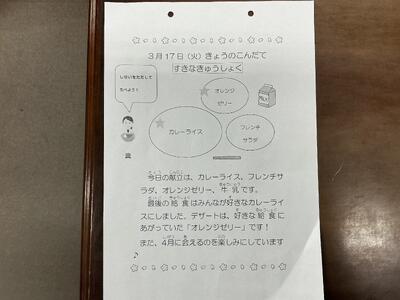 3月17日(火)きょうのこんだて
すきなきゅうしょく
しせいをただして
たべよう！
オレンジ
ゼリー
カレーライス
フレンチ
サラダ
今日の献立は、カレーライス、フレンチサ
ラダ、オレンジゼリー、牛乳です。
最後の給食はみんなが好きなカレーライ
スにしました。デザートは、好きな給食に
あがっていた「オレンジゼリー」です！
また、4月に会えるのを楽しみにしています
♪